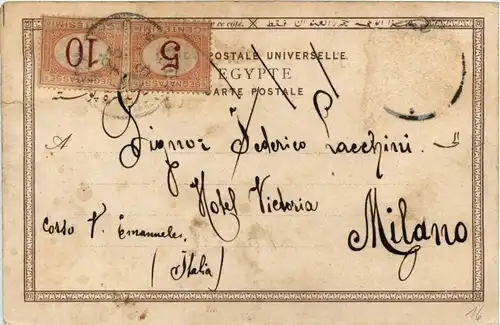 ce côté.
10 5
SEGNATASSE CENTESIMI
POSTALE UNIVERSELLE
EGYPTE
CARTE POSTALE
A Signor Federico Lacchini.
Hotel Victoria
Corso V. Emanuele,
Milano
(Italia)
16